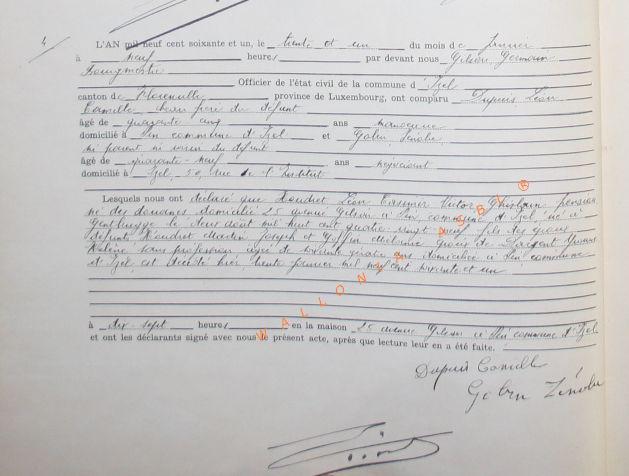 4
L'AN mil neuf cent soixante et un, le trente et un du mois de janvier
à neuf heures par devant nous Gilson, Germain
Officier de l'état civil de la commune d' Izel
canton de Florenville province de Luxembourg, ont comparu Dupuis Léon
Camille, beau père du défunt
âgé de quarante cinq ans manoeuvre
domicilié à Pin commune d'Izel et Gobin Zénobe,
ni parent ni voisin du défunt
âgé de quarante-neuf ans négociant
domicilié à Izel, 50, rue de l'Institut
Lesquels nous ont déclaré que Houdret Léon Casimir Victor Ghislain, pension
né des douanes domicilié 25 avenue Gilson à Pin commune d'Izel, né à
Gembloux le deux août mil huit cent quatre vingt neuf, fils des époux
défunts Houdret Martin Joseph et époux de Sargent
sans profession âgée de soixante quatre ans domiciliée à Pin commune
d'Izel est décédé hier trente janvier mil neuf cent soixante et un
à dix-sept heures en la maison 25 avenue Gilson à Pin commune d'Izel
et ont les déclarants signé avec nous le présent acte, après que lecture leur en a été faite.
Dupuis Camille
Gobin Zénobe
WALLONIA ASBL ®